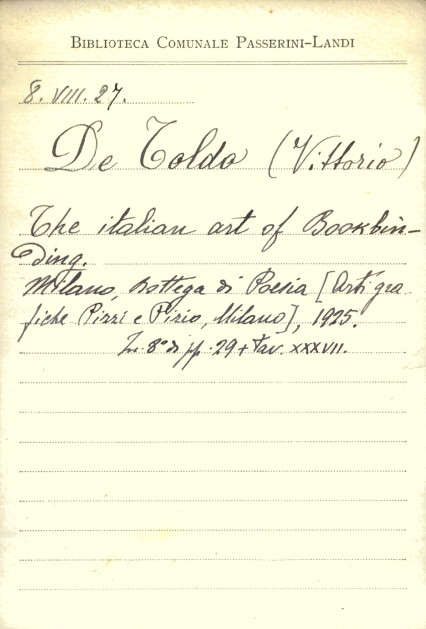 BIBLIOTECA COMUNALE PASSERINI-LANDI
8. VIII. 27.
De Toldo (Vittorio)
The italian art of Bookbin-
ding.
Milano, Bottega di Poesia [Arti gra
fiche Pizzi e Pizio, Milano], 1925.
In 8° di pp. 29 + tav. XXXVII.